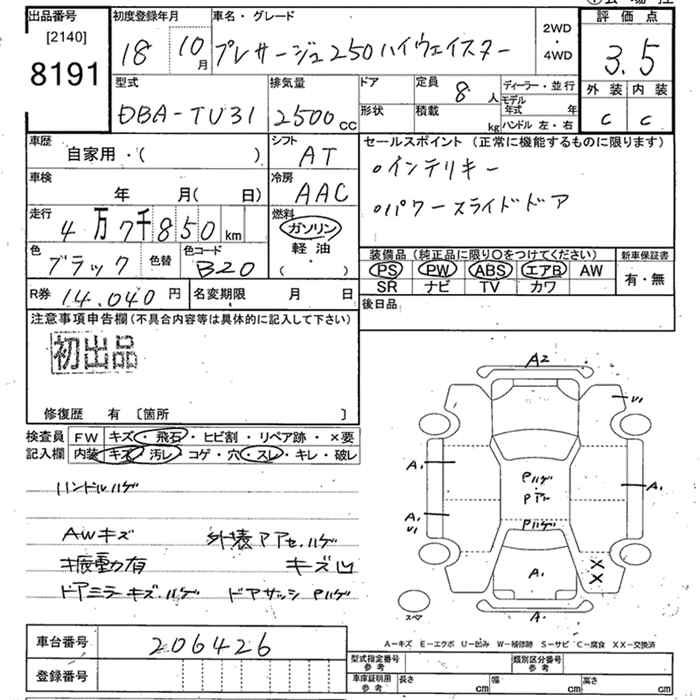 出品番号 初度登録年月 車名・グレード 2WD ・ 4WD 評価点
[2140]
8191 18 10月 プレサージュ250ハイウェイスター 3.5
型式 排気量 ドア 定員 8人 ディーラー・並行 外装 内装
DBA-TU31 2500cc 形状 積載 kg モデル年式 年 C C
ハンドル 左・右
車歴 シフト セールスポイント(正常に機能するものに限ります)
自家用・( ) AT ・インテリキー
車検 冷房
年 月( 日) AAC ・パワースライドドア
走行 燃料
4万7千850km ガソリン
軽油
( )
色 色替 色コード 装備品(純正品に限り○をつけてください) 新車保証書
ブラック B20 PS PW ABS エアB AW 有・無
SR ナビ TV カワ
R券 14,040円 名変期限 月 日 後日品
注意事項申告欄(不具合内容等は具体的に記入して下さい)
初出品
修復歴 有 [箇所 ]
検査員 FW キズ・飛石・ヒビ割・リペア跡・×要
記入欄 内装 キズ・汚レ・コゲ・穴・スレ・キレ・破レ
ハンドルハゲ
AWキズ
振動有 キズ凹
ドアミラーキズ.ハゲ ドアサッシ Pハゲ
A2
U1
A1
A1
A1
U1
Pハゲ
Pハゲ
A1
×
×
A1
スペア
A-キズ E-エクボ U-凹み W-補修跡 S-サビ C-腐食 XX-交換済
車台番号 206426
登録番号
型式指定番号 参考 類別区分番号 参考
車庫証明用 参考 長さ cm 幅 cm 高さ cm